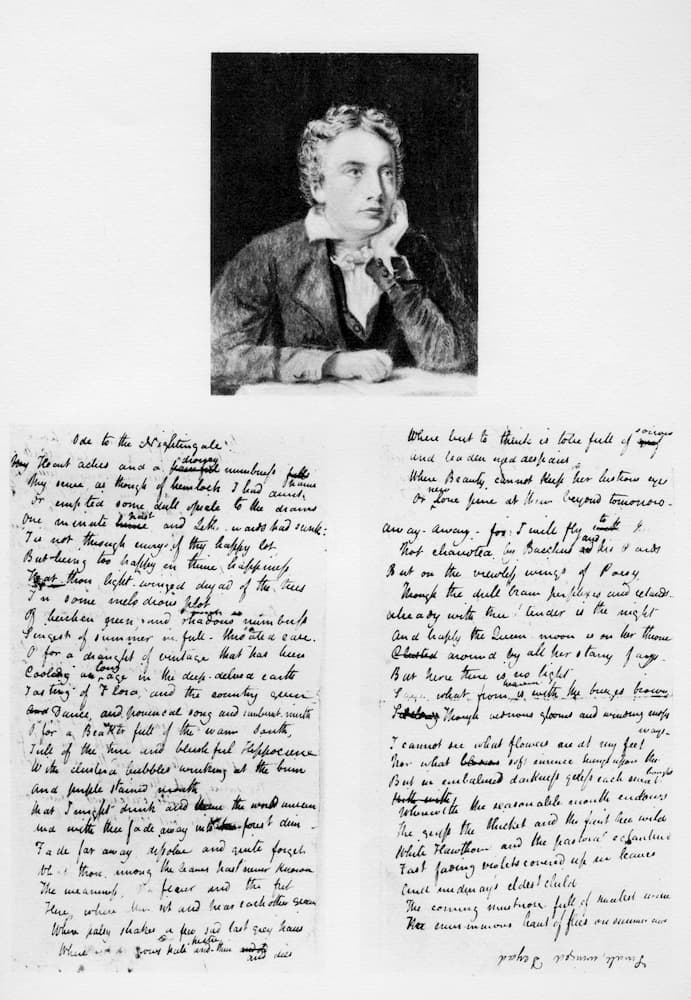 Ode to the Nightingale
My Heart aches and a drowsy painful numbness falls
My sense as though of hemlock I had drunk
Or emptied some dull opiate to the drains
One minute hence past and Lethe wards had sunk:
Tis not through envy of thy happy lot
But being too happy in thine happiness
That thou light-winged dryad of the trees
In some melodious plot
Of beechen green, and shadows numberless
Singest of summer in full-throated ease.
O for a draught of vintage that has been
Cooling an age long in the deep-delved earth
Tasting of Flora, and the country green
And Dance, and provencal song and sunburnt mirth
O for a Beaker full of the warm South,
Full of the true and blushful Hippocrene
With cluster'd bubbles winking at the brim
And purple stained mouth
That I might drink and leave the world unseen
And with thee fade away into the forest dim-
Fade far away dissolve and quite forget
What thou among the leaves hast never known
The weariness, the fever and the fret
Here, where Men sit and hear each other groan
Where palsy shakes a few sad last grey hairs
Where youth grows pale and thin and dies
Where but to think is to be full of sorrow
and leaden eyed despairs
Where Beauty cannot keep her lustrous eyes
Or new Love pine at them beyond tomorrow-
Away-away-for I will fly to thee
Not charioted by Bacchus and his Pards
But on the viewless wings of Poesy
Though the dull brain perplexes and retards-
Already with thee! tender is the night
And haply the Queen-moon is on her throne
Cluster'd around by all her starry fays-
But here there is no light
Save what from heaven is with the breezes blown
Through verdurous glooms and winding mossy
ways-
I cannot see what flowers are at my feet
Nor what soft incense hangs upon the boughs
But in embalmed darkness guess each sweet
Wherewith the seasonable month endows
The grass the thicket and the fruit tree wild
White Hawthorn and the pastoral eglantine
Fast fading violets covered up in leaves
And midmays eldest child
The coming muskrose full of sweetest wine
The murmurous haunt of flies on summer eves
Small, winged Dryad